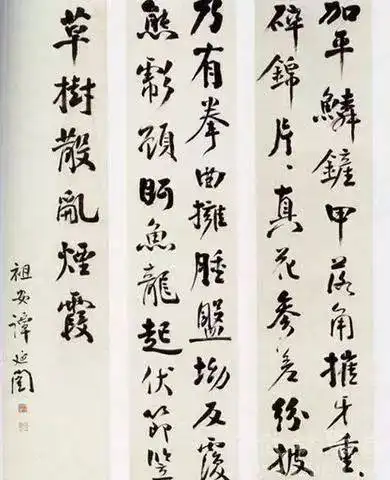 加平鱗鏟甲落角摧牙重、
碎錦片、真花參差紛披
乃有拳曲擁腫盤坳反覆
熊彪顧眄魚龍起伏節豎
草樹散亂煙霞
祖安譚延闓